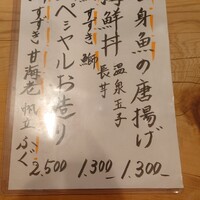 身魚の唐揚げ
1.300-
海鮮丼 温泉玉子
長芋
1.300-
すずき 鰤
スペシャルお造り
2.500
すずき 甘海老 帆立 ふぐ